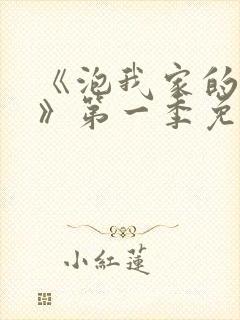 《泡我家的
》第一季免
小紅蓮